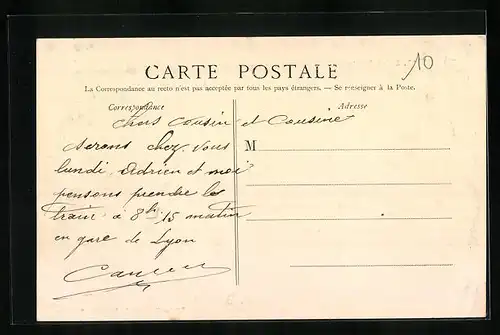 10
CARTE POSTALE
La Correspondance au recto n'est pas acceptée par tous les pays étrangers. — Se renseigner à la Poste.
Correspondance
Adresse
Chers Cousin et Cousine
serons chez vous
lundi. Adrien et moi
pensons prendre le
train à 8h 15 matin
en gare de Lyon
M